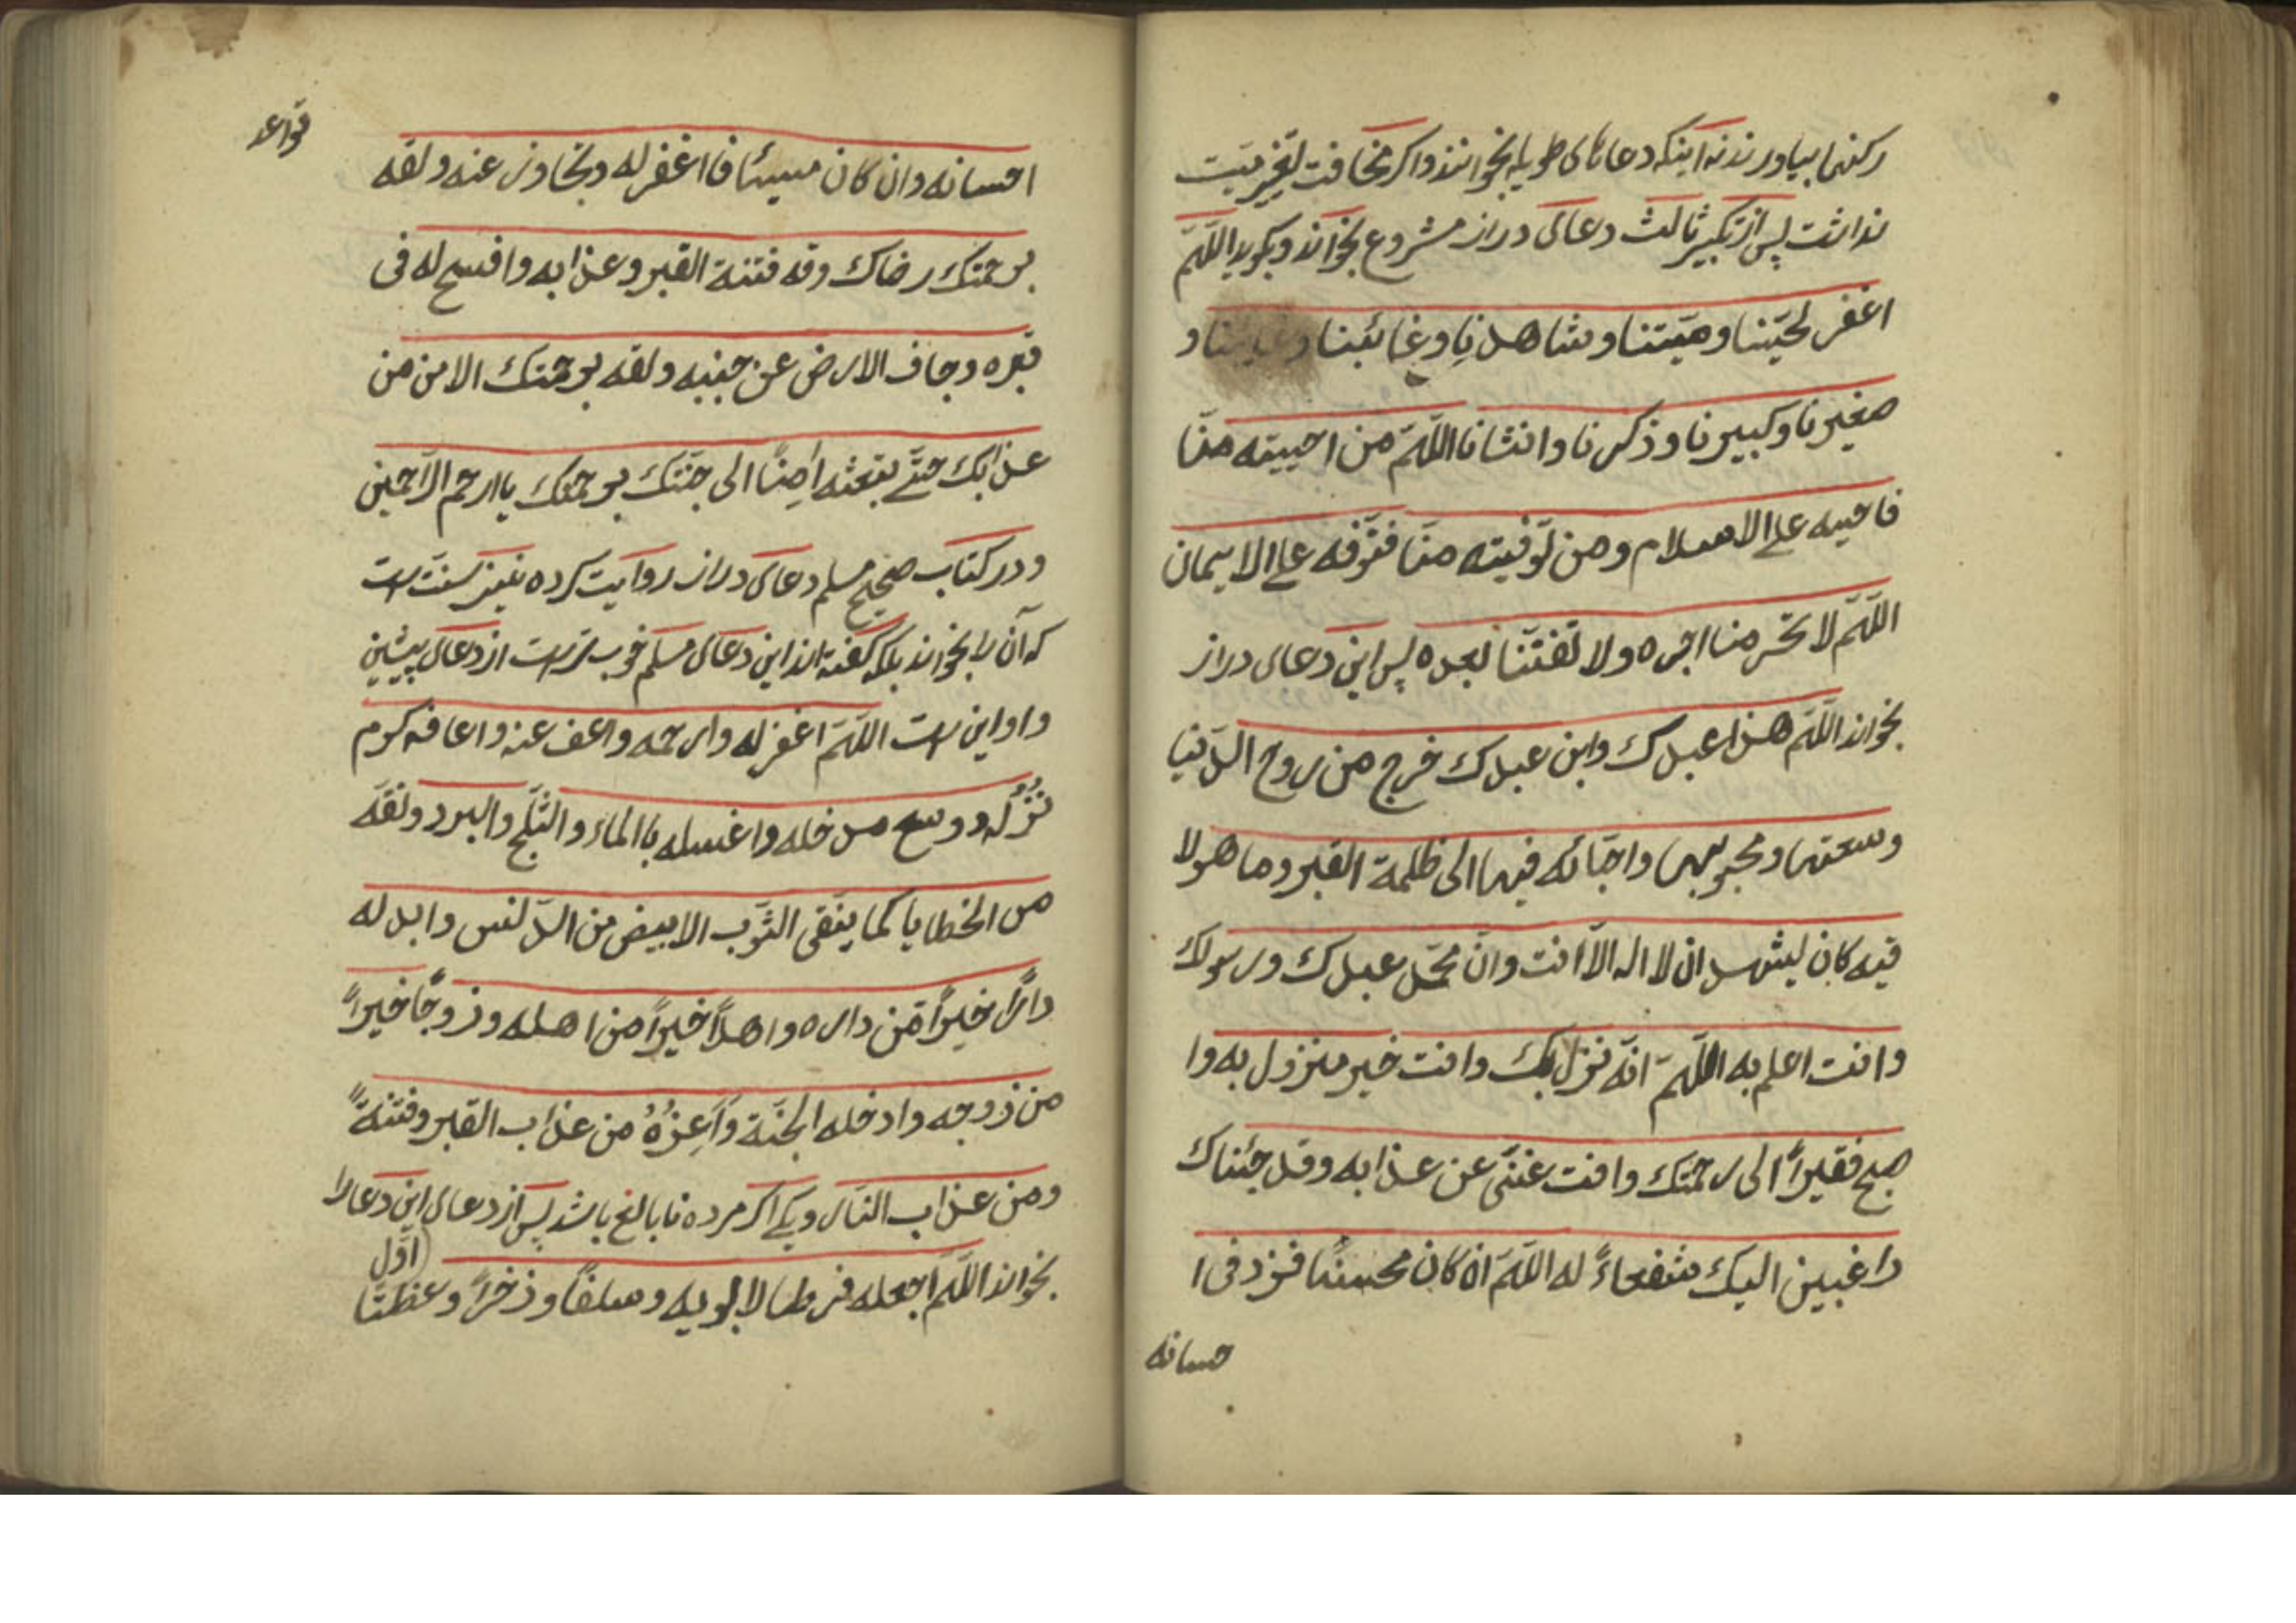 رکنها بیاورند نه اینکه دعاهای طویله بخوانند واکر مخافت تغیر میّت
نداشت پس از تکبیر ثالث دعای دراز مشروع بخواند وبکوید اللّهمّ
اغفر لحیّنا ومیّتنا وشاهدنا وغائبنا و
صغیرنا وکبیرنا وذکرنا وانثانا اللّهمّ من احییته منّا
فاحیه علی الاسلام ومن توفیته منّا فتوّفه علی الایمان
اللّهمّ لا تحرمنا اجره ولا تفتنّا بعده پس این دعای دراز
بخواند اللّهمّ هذا عبدك وابن عبدك خرج من روح الدّنیا
وسعتها ومحبوبها واحبّائه فیها الی ظلمة القبر وما هو لا
قیه کان لیشهد ان لا اله الّا انت وانّ محمّد عبدك ورسولك
وانت اعلم به اللّهمّ انّه نزل بك وانت خیر منزول به وا
صبح فقیراً الی رحمتك وانت غنیّ عن عذابه وقد جئناك
راغبین الیك شفعاءً له اللّهمّ ان کان محسنًا فزد فی ا
حسانه
قواعد
احسانه وان کان مسیئًا فا اغفر له وتجاوز عنه ولقه
برحمتك رضاك وقه فتنة القبر وعذابه وافسح له فی
قبره وجاف الارض عن جنبیه ولقه برحمتك الامن من
عذابك حتّی تبعثه اٰمِنًا الی جنّتك برحمتك یا ارحم الرّاحمین
ودر کتاب صحیح مسلم دعای دراز روایت کرده نیز سنّت است
که آن را بخواند بلکه کفته اند این دعای مسلم خوب تر است از دعای پیشین
واو این است اللّهمّ اغفر له وارحمه واعف عنه واعافه کرم
نُزُلُه ووسع مدخله واغسله باالماء والثّلج والبرد ونقّه
من الخطایا کما ینقی الثّوب الابیض من الدّلنس وابدله
دارًا خیراً مّن داره واهلاً خیراً من اهله وزوجًا خیراً
من زوجه وادخله الجنّة وَاَعِذْهُ من عذاب القبر وفتنةً
ومن عذاب النّار ویکی اکر مرده نابالغ باشد پس از دعای این دعا را
اوّل
بخواند اللّهمّ اجعله فرطا لابویه وسلفًا وذخرًا وعظتًا